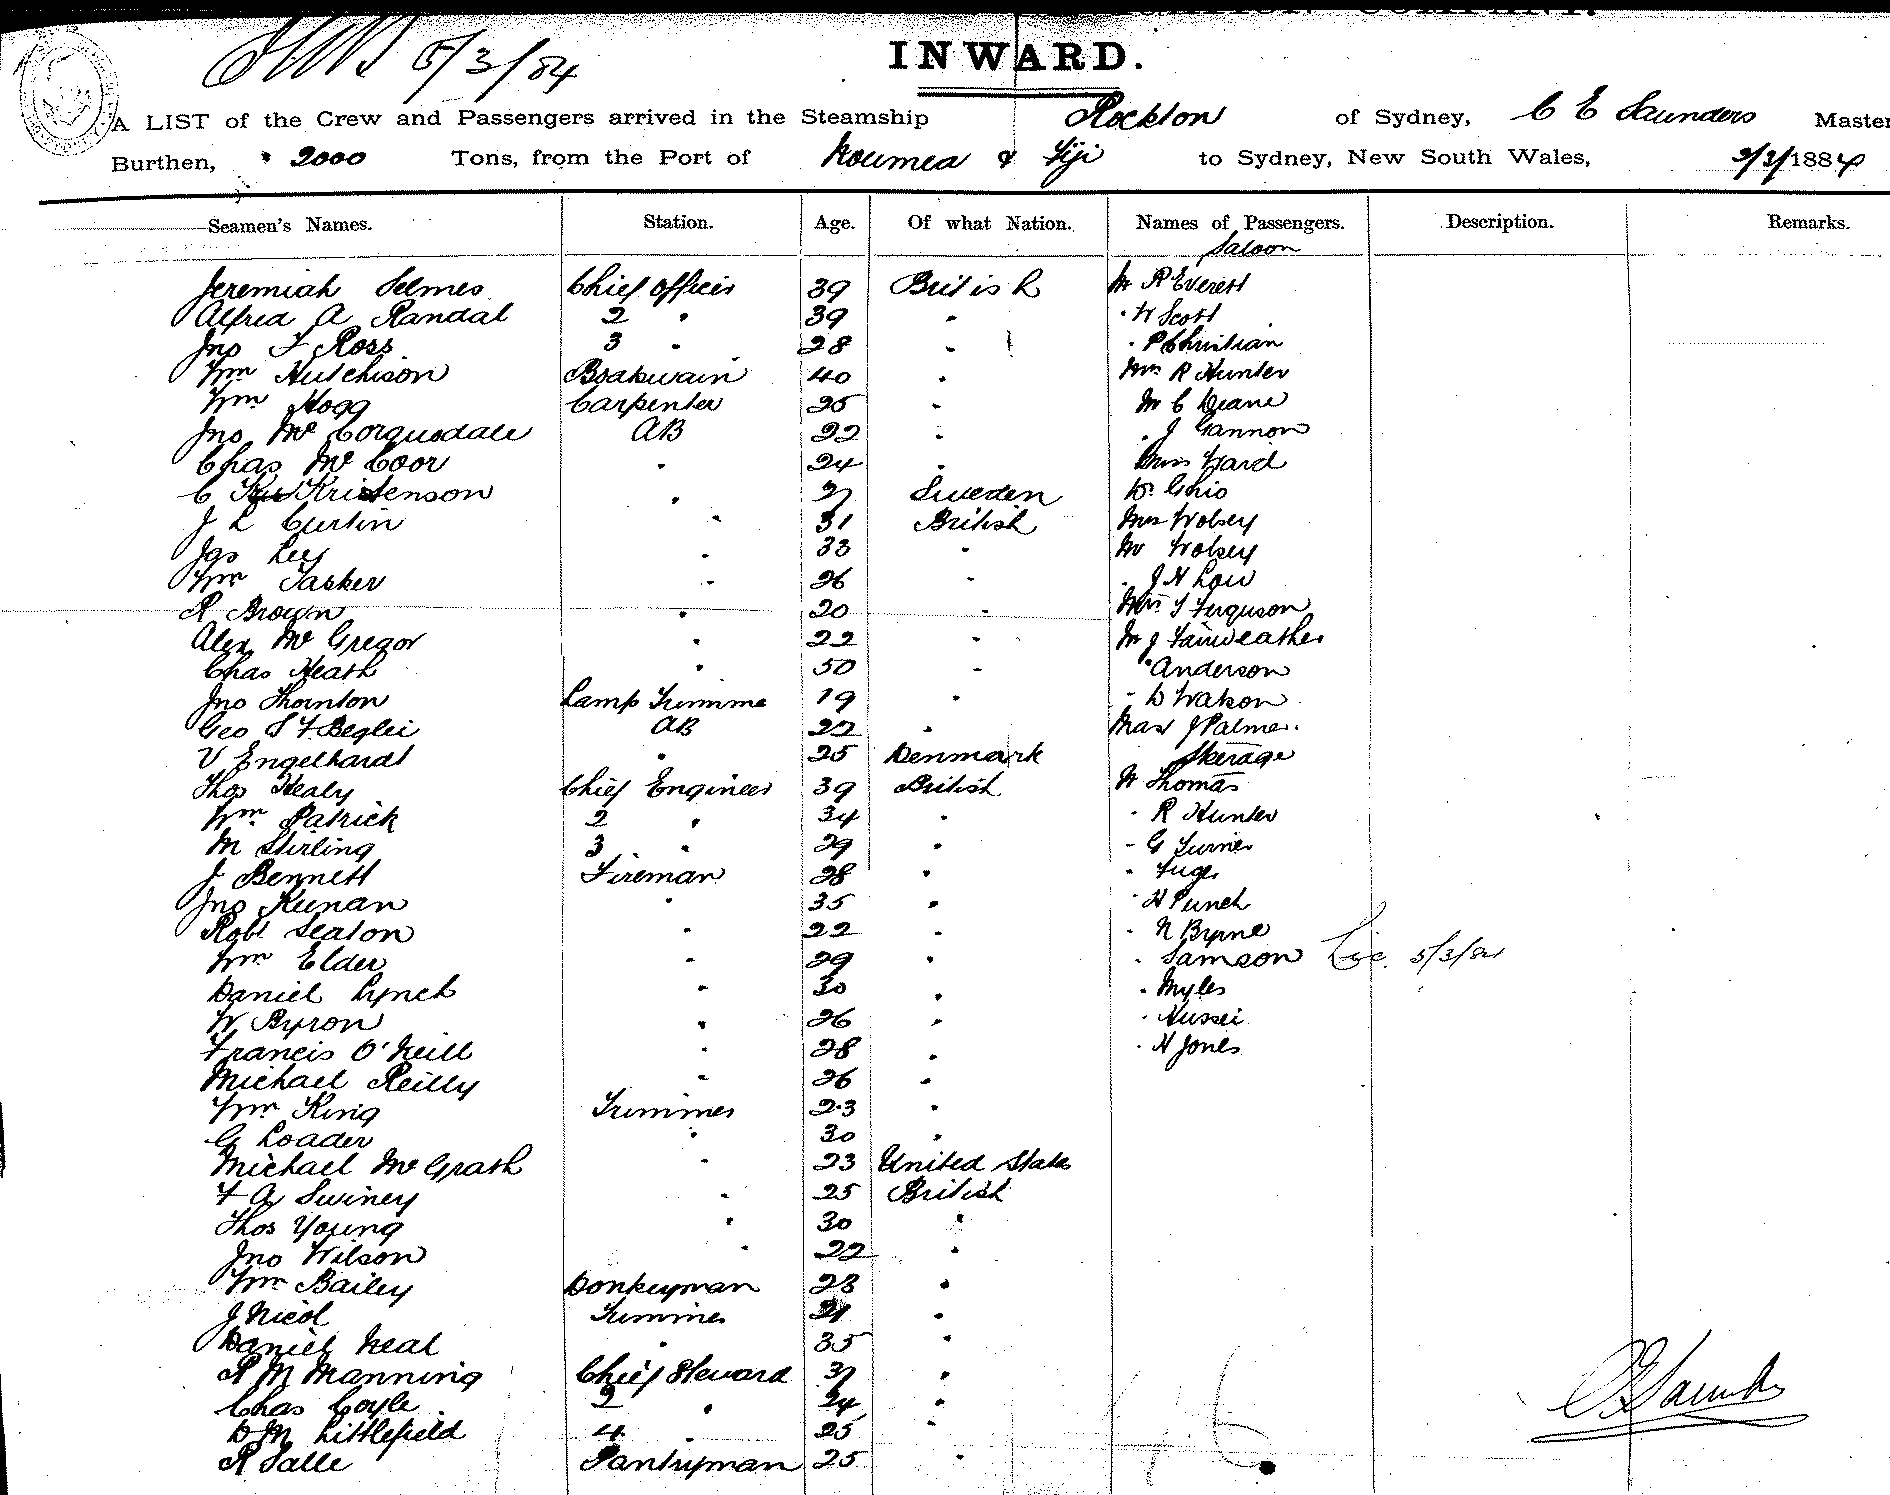 5/3/84
INWARD.
A LIST of the Crew and Passengers arrived in the Steamship Rockton of Sydney, C E Saunders Master
Burthen, 2000 Tons, from the Port of Noumea & Fiji to Sydney, New South Wales, 3/3/1884
Seamen's Names. Station. Age. Of what Nation. Names of Passengers. Description. Remarks.
Saloon
Jeremiah Selmes Chief Officer 39 British Mr R Everett
Alfred A Randal 2 " 39 " " W Scott
Jno F Ross 3 " 28 " " P Christian
Wm Hutchison Boatswain 40 " Mrs R Hunter
Wm Hogg Carpenter 25 " Mr C Deane
Jno McCorquodale AB 22 " " J Gannon
Chas McCoor " 24 " Miss Ward
C Kristenson " 27 Sweden Dr Ghio
J L Curtin " 31 British Mrs Wolsey
Jas Ley " 33 " Mr Wolsey
Wm Tasker " 26 " " J H Low
R Brown " 20 " Mrs S Ferguson
Alex McGregor " 22 " Mr J Fairweather
Chas Heath " 50 " " Anderson
Jno Thornton Lamp Trimmer 19 " " D Watson
Geo S F Beglei AB 22 " Mast J Palmer
V Engelhardt " 25 Denmark Steerage
Thos Healy Chief Engineer 39 British W Thomas
Wm Patrick 2 " 34 " " R Hunter
M Stirling 3 " 29 " " G Turner
J Bennett Fireman 28 "
Jno Kunan " 35 " " H Punch
Robt Seaton " 22 " " N Byrne
Wm Elder " 29 " " Samson 5/3/84
Daniel Lynch " 30 " " Myles
W Byron " 26 " " Hussei
Francis O'Neill " 28 " " H Jones
Michael Reilly " 26 "
Wm King Trimmer 23 "
G Loader " 30 "
Michael McGrath " 23 United States
F A Swiney " 25 British
Thos Young " 30 "
Jno Wilson " 22 "
Wm Bailey Donkeyman 28 "
J Nicol Trimmer 21 "
Daniel Neal " 35 "
R M Manning Chief Steward 37 "
Chas Coyle 2 " 24 "
D M Littlefield 4 " 25 "
R Salle Pantryman 25 "
C E Saunders